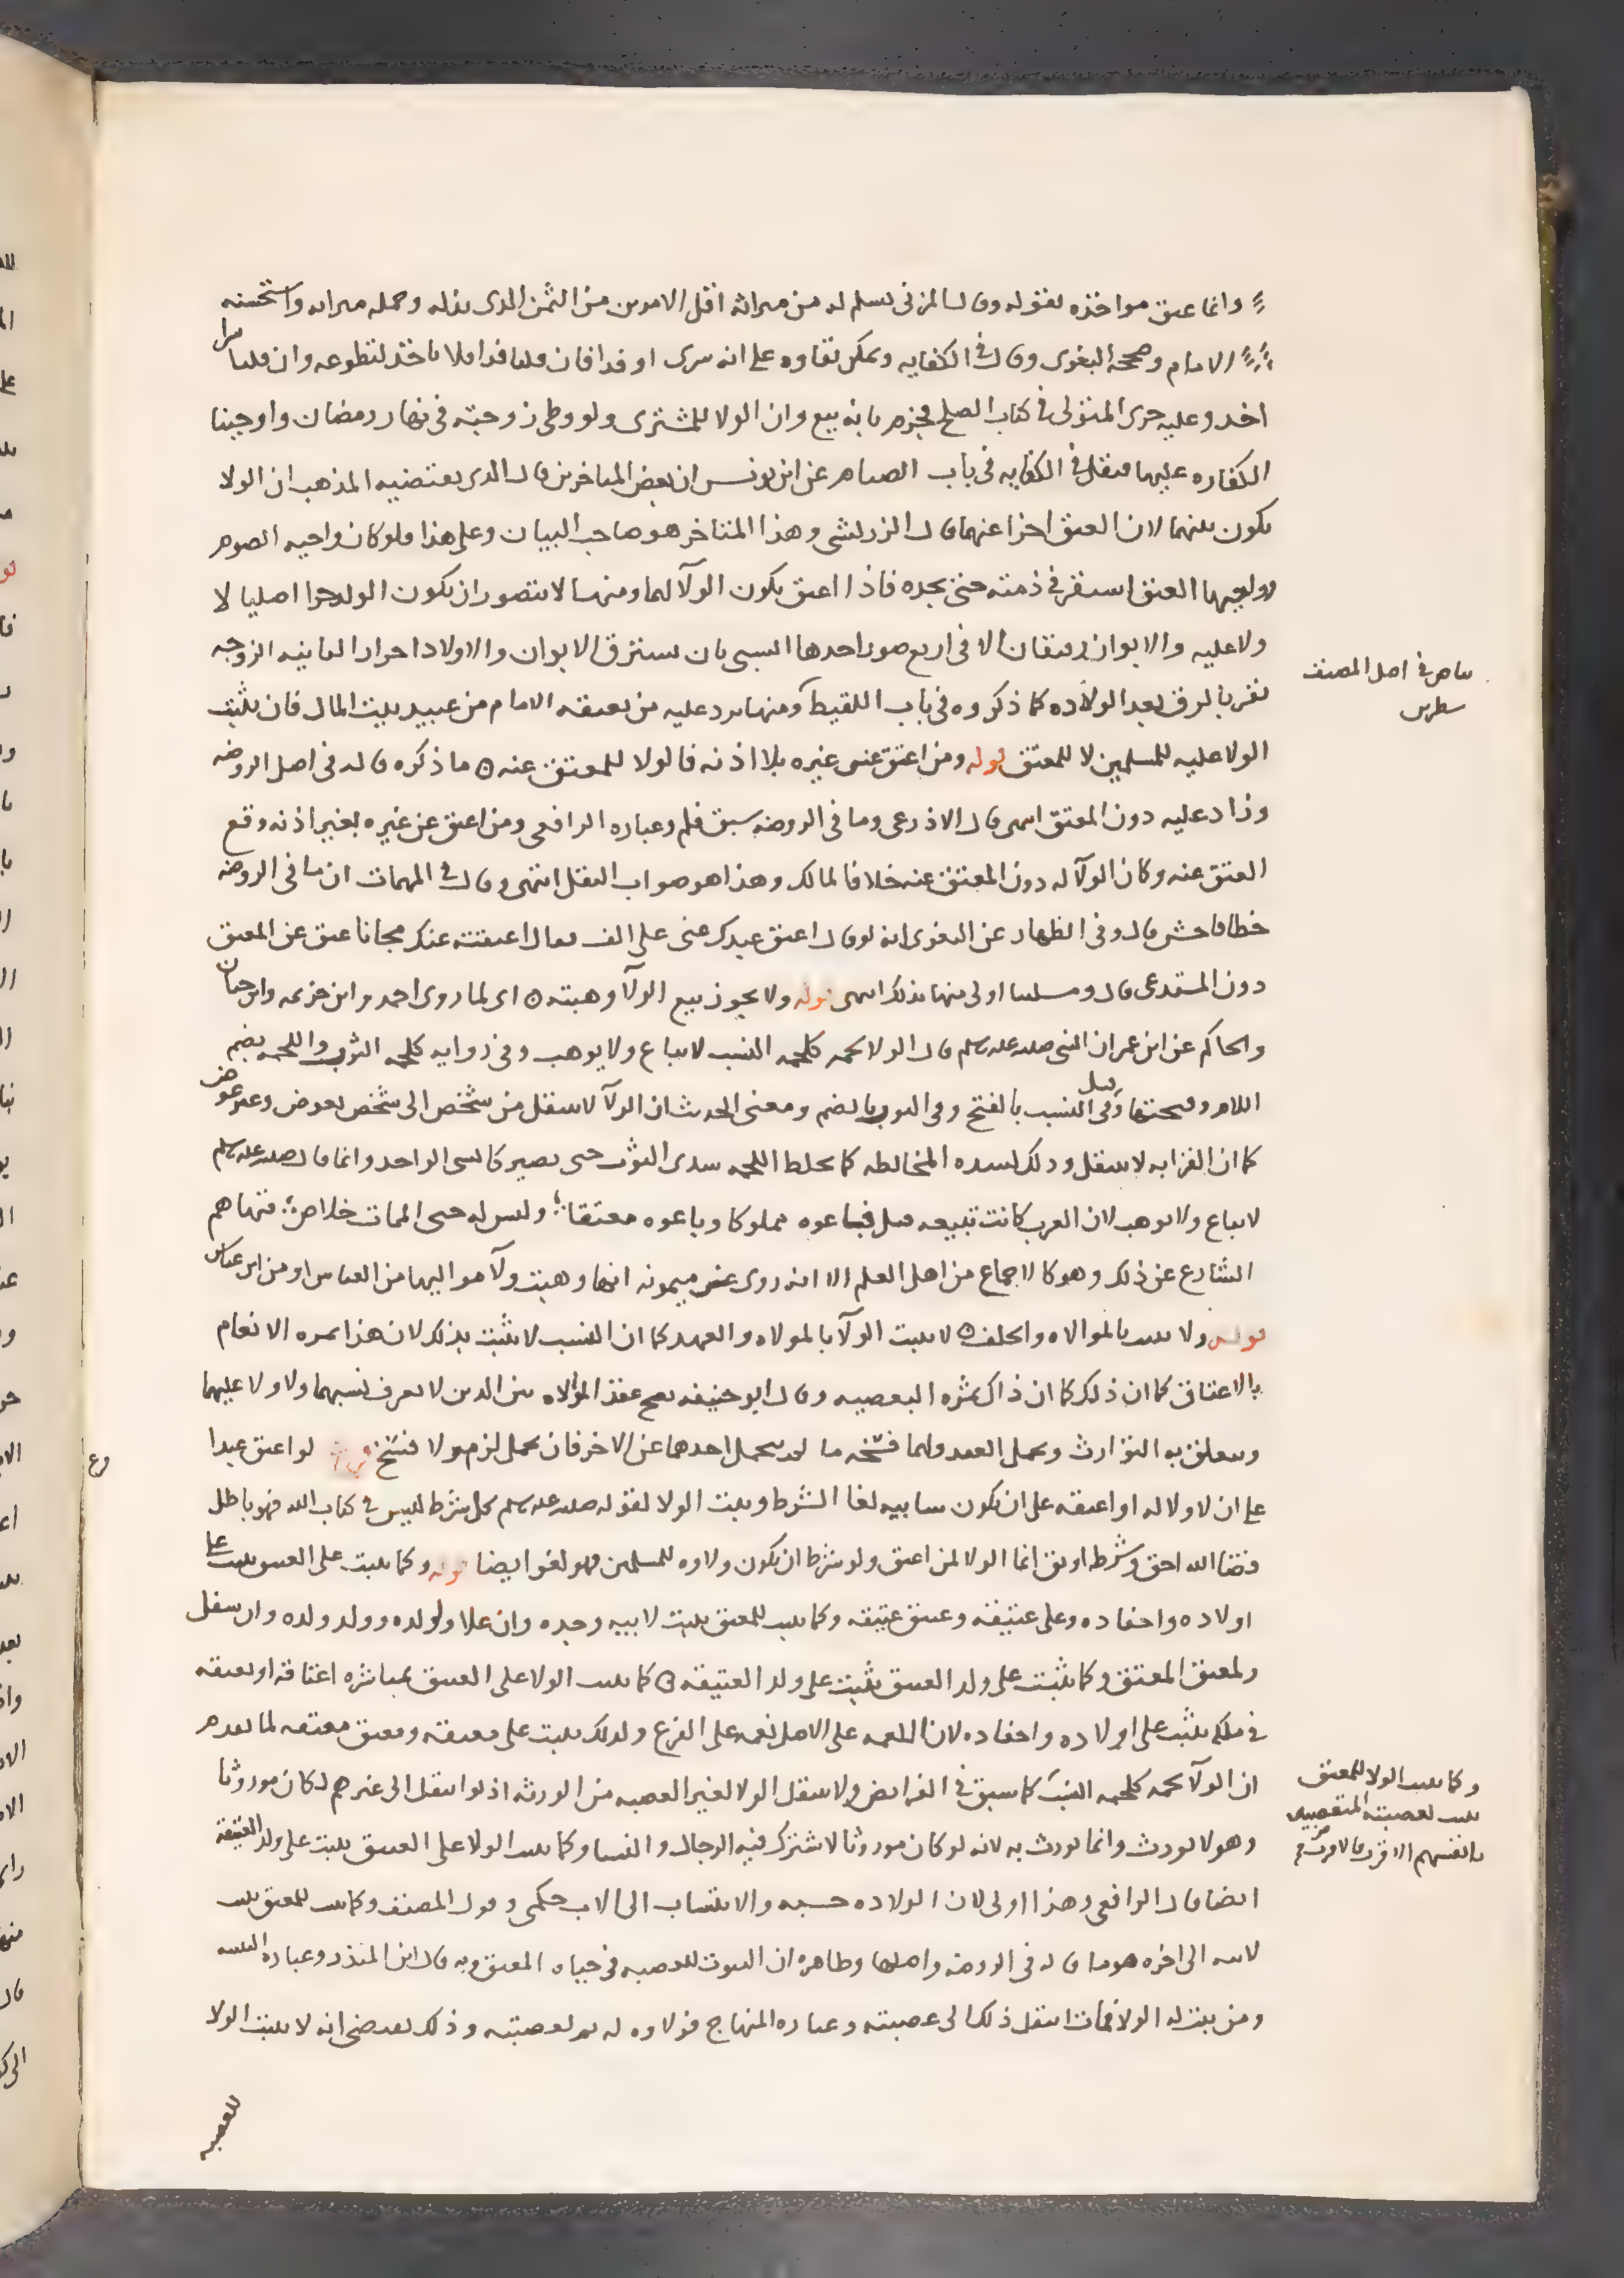 وانما عتق مواخذه بقوله وقال المزنى يسلم له من ميراثه اقل الامرين من الثمن الذى بذله وجمله ميراثه واستحسنه
الامام وصححه البغوى وقال فى الكفايه ويمكن بناوه على انه شرى او فدا فان قلنا فدا فلا ياخذ لتطوعه وان قلنا شرا
اخد وعليه جرى المتولى فى كتاب الصلح فجزم بانه بيع وان الولا للمشترى ولو وطى زوجته فى نهار رمضان واوجبنا
الكفاره عليهما فنقل فى الكفايه فى باب الصيام عن ابن يونس ان بعض المتاخرين قال الدى يقتضيه المذهب ان الولا
يكون بينهما لان العتق اجزا عنهما قال الزركشى وهذا المتاخر هو صاحب البيان وعلى هذا فلو كان واجبه الصوم
وواجبها العتق استقر فى ذمته حتى يجده فاذا اعتق يكون الولآ لهما ومنها لا يتصور ان يكون الولد حرا اصليا لا
ولا عليه والابوان رقيقان الا فى اربع صور احدها السبى بان يسترق الابوان والاولاد احرار الثانيه الزوجه
تقر بالرق بعد الولاده كما ذكروه فى باب اللقيط ومنها يرد عليه من يعتقه الامام من عبيد بيت المال فان يثبت
الولا عليه للمسلمين لا للمعتق قوله ومن اعتق عن غيره بلا اذنه فالولا للمعتق عنه ه ما ذكره قاله فى اصل الروضه
وزاد عليه دون المعتق انتهى قال الاذرعى وما فى الروضه سبق قلم وعباره الرافعى ومن اعتق عن غيره بغير اذنه وقع
العتق عنه وكان الولآ له دون المعتق عنه خلافا لمالك وهذا هو صواب النقل انتهى وقال فى المهمات ان ما فى الروضه
خطا فاحش قال وفى الظهار عن البغوى انه لو قال اعتق عبدك عنى على الف فقال اعتقته عنك مجانا عتق عن المعتق
دون المستدعى قال ومسلتنا اولى منها بذلك انتهى قوله ولا يجوز بيع الولآ وهبته ه اى لما روى احمد وابن خزيمه وابن حبان
والحاكم عن ابن عمر ان النبى صلى الله عليه وسلم قال الولا لحمه كلحمه النسب لا يباع ولا يوهب وفى روايه كلحمه الثوب واللحمه بضم
اللام وفتحها وقيل فى النسب بالفتح وفى الثوب بالضم ومعنى الحديث ان الولآ لا ينتقل من شخص الى شخص بعوض وغير عوض
كما ان القرابه لا تنتقل ودلك لشده المخالطه كما يخلط اللحمه سدى الثوب حتى يصير كالشى الواحد وانما قال صلى الله عليه وسلم
لا يباع ولا يوهب لان العرب كانت تبيعه قيل فباعوه مملوكا وباعوه معتقا ؛ وليس له حتى الممات خلاص ؛ فنهاهم
الشارع عن ذلك وهو كالاجماع من اهل العلم الا انه روى عن ميمونه انها وهبت ولآ مواليها من العباس او من ابن عباس
قوله ولا يثبت بالموالاه والحلف ه لا يثبت الولآ بالمولاه والعهد كما ان النسب لا يثبت بذلك لان هذا ثمره الانعام
بالاعتاق كما ان ذلك كما ان ذاك ثمره البعضيه وقال ابو حنيفه يصح عقد الموالاه بين الدين لا يعرف نسبهما ولا ولا عليهما
ويتعلق به التوارث وتحمل العقد ولهما فسخه ما لم يتحمل احدهما عن الاخر فان تحمل لزم ولا فسخ فرع لو اعتق عبدا
على ان لا ولا له او اعتقه على ان يكون سايبه لغا الشرط ويثبت الولا لقوله صلى الله عليه وسلم كل شرط ليس فى كتاب الله فهو باطل
قضا الله احق وشرطه اوثق انما الولا لمن اعتق ولو شرط ان يكون ولاوه للمسلمين فهو لغو ايضا قوله وكما يثبت على العتيق يثبت على
اولاده واحفاده وعلى عتيقه وعتيق عتيقه وكما يثبت للمعتق يثبت لابيه وجده وان علا ولولده وولد ولده وان سفل
ولمعتق المعتق وكما يثبت على ولد العتيق يثبت على ولد العتيقه ه كما يثبت الولا على العتيق بمباشره اعتاقه او بعتقه
فى ملكه يثبت على اولاده واحفاده لان النعمه على الاصل نعمه على الفرع ولذلك يثبت على معتقه ومعتق معتقه لما تقدم
ان الولآ لحمه كلحمه النسب كما سبق فى الفرايض ولا ينتقل الولا لغير العصبه من الورثه اذ لو انتقل الى غيرهم لكان موروثا
وهو لا يورث وانما يورث به لانه لو كان موروثا لاشترك فيه الرجال والنسا وكما يثبت الولا على العتيق يثبت على ولد العتيقه
ايضا قال الرافعى وهذا اولى لان الولاده حسيه والانتساب الى الاب حكمى وقول المصنف وكما يثبت للمعتق يثبت
لابيه الى اخره هو ما قاله فى الروضه واصلها وظاهره ان الثبوت للعصبه فى حياه المعتق وبه قال ابن المنذر وعباره التنبيه
ومن يثبت له الولا فمات انتقل ذلك الى عصبته وعباره المنهاج فولاوه له ثم لعصبته وذلك يقتضى انه لا يثبت الولا
للعصبه
بياض فى اصل المصنف
سطرين
فرع
وكما يثبت الولا للمعتق
يثبت لعصبته المتعصبين
بانفسهم الاقرب فالاقرب